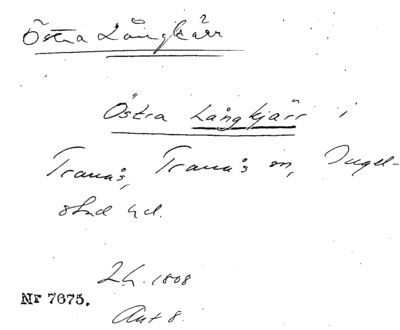 Östra Långkärr
Östra Långkjärr i
Tranås, Tranås sn, Ingel-
stad hd.
Lh. 1808
Nr 7675.
Akt 8.